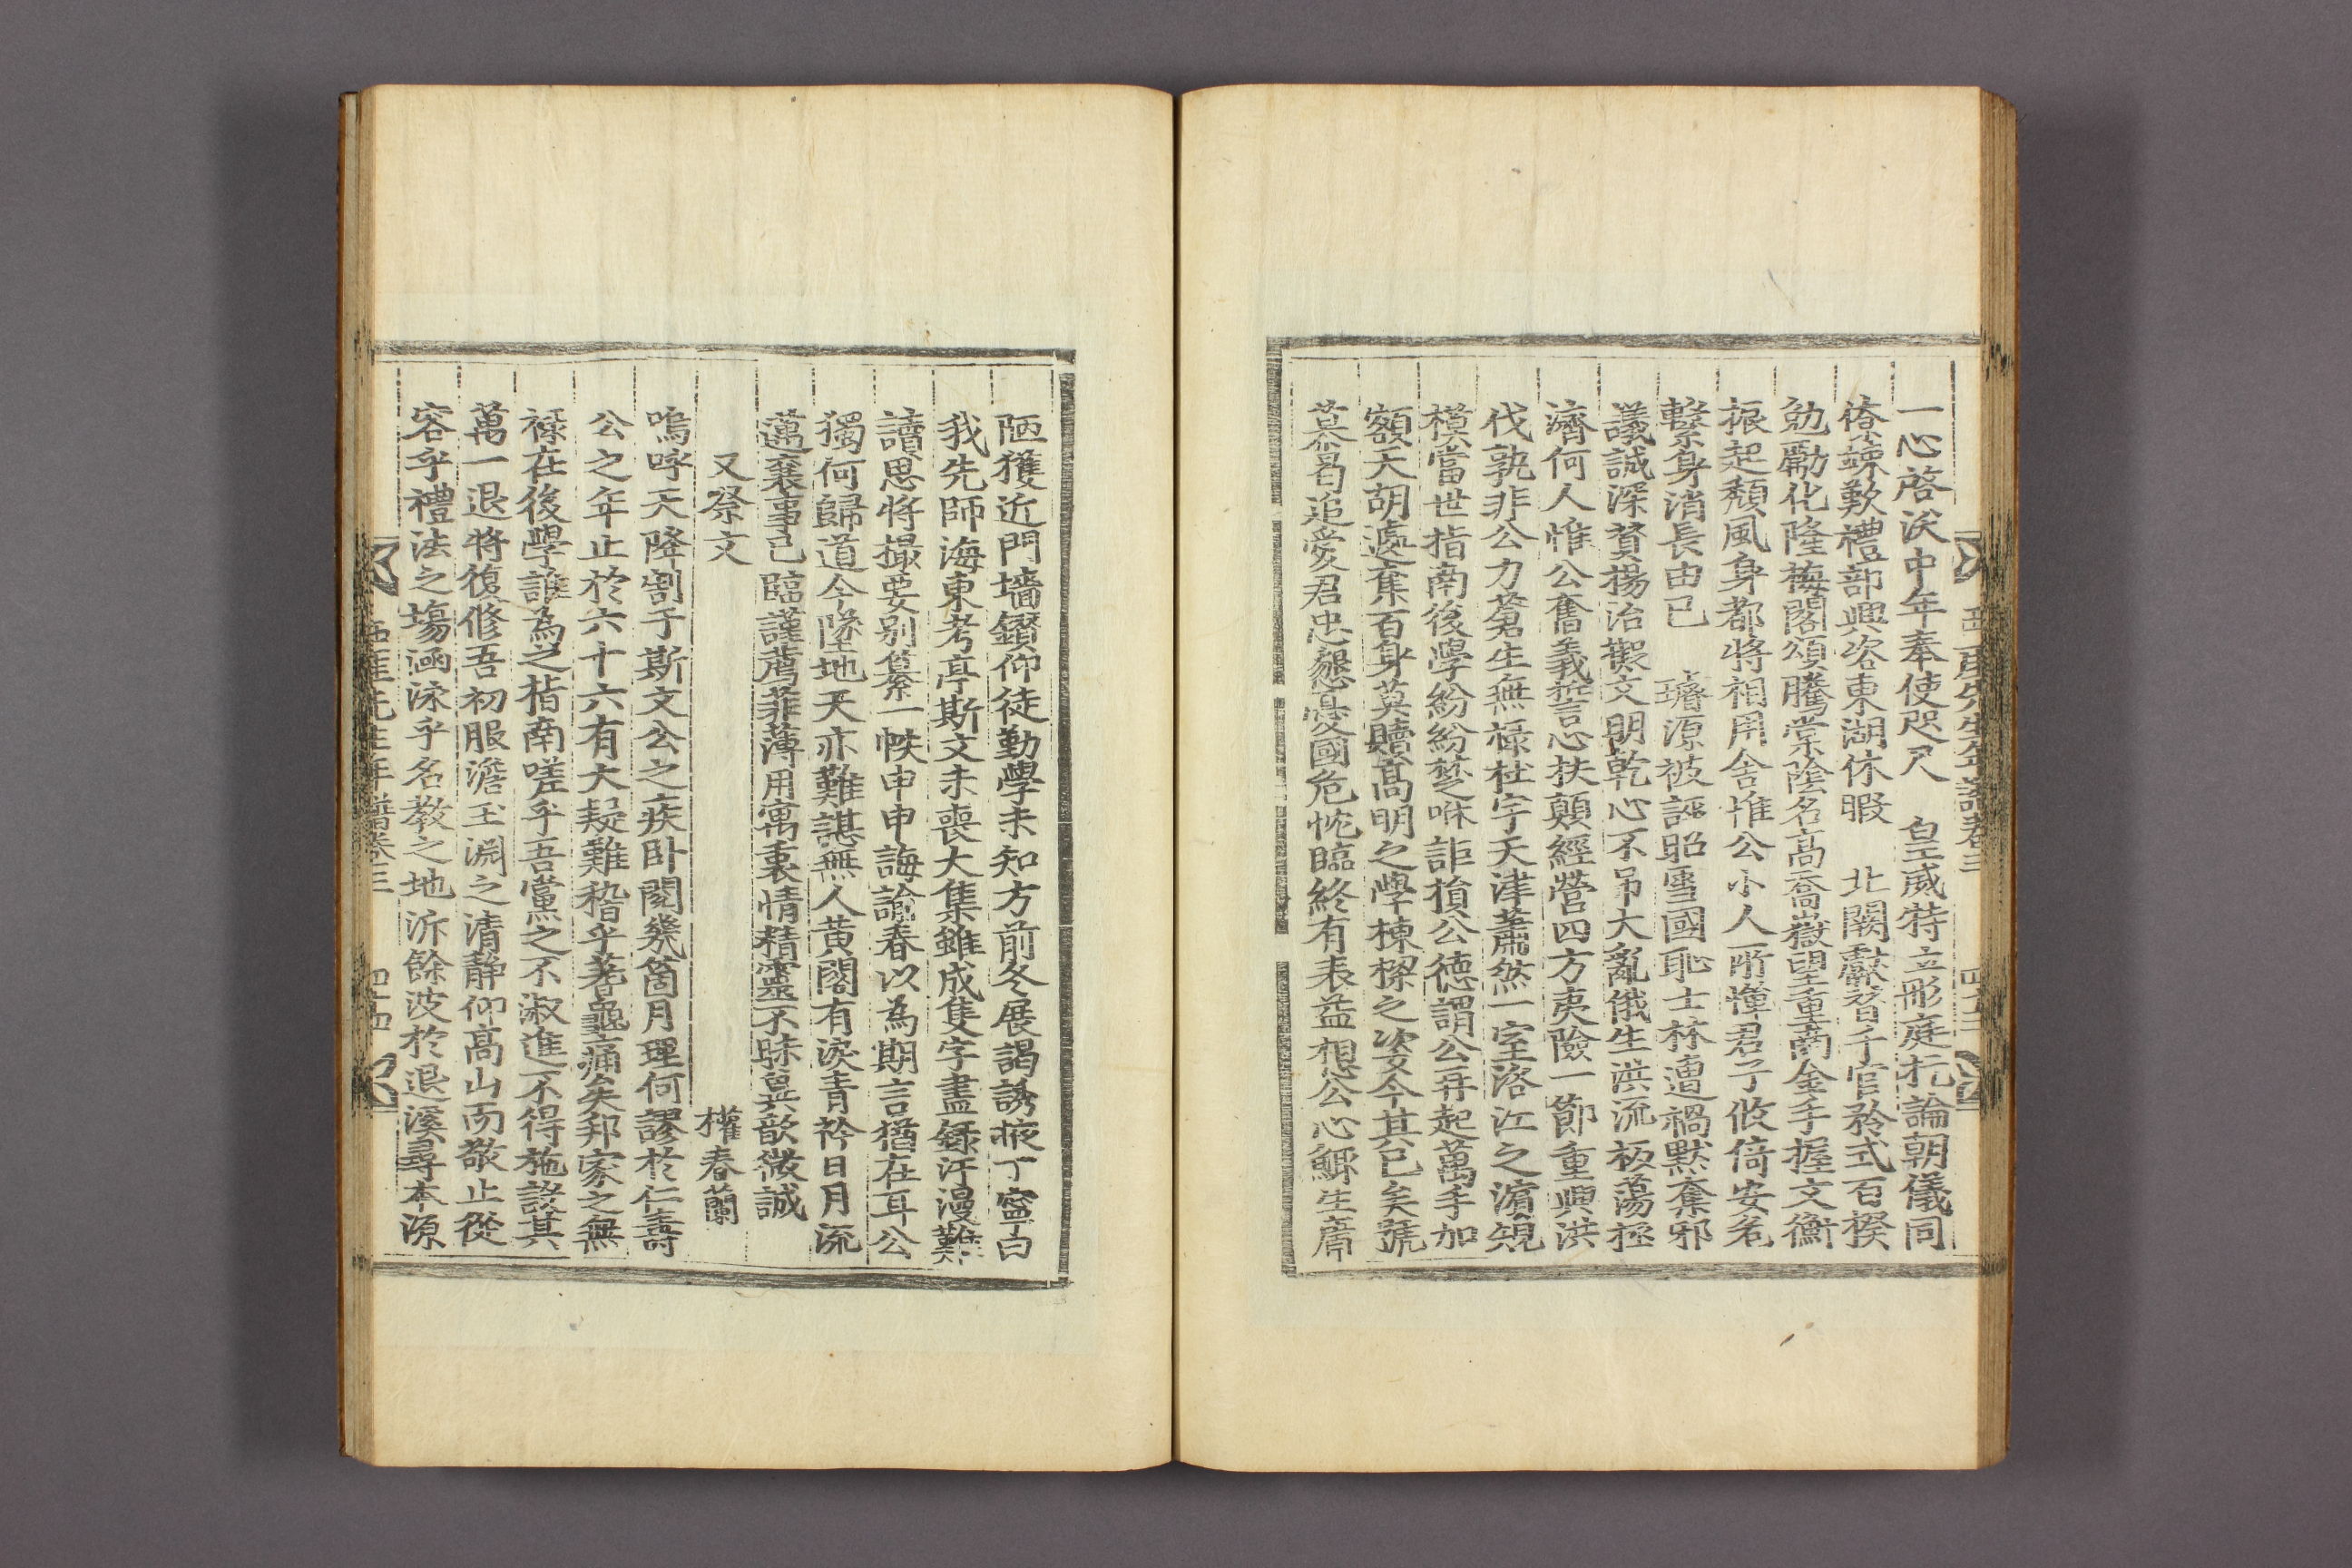 西厓先生年譜卷三
一心啓沃中年奉使咫尺 皇威特立彤庭抗論朝儀同
僚竦歎禮部興咨東湖休暇 北闕獻替千官矜式百揆
勉勵化隆梅閣頌騰棠蔭名高喬嶽望重南金手握文衡
振起頹風身都將相用舍惟公小人所憚君子攸倚安危
繫身消長由已 璿源被誣昭雪國恥士林遭禍默奪邪
議誠深贊揚治叢文明乾心不弔大亂俄生洪流板蕩拯
濟何人惟公奮義誓心扶顛經營四方夷險一節重興洪
伐孰非公力蒼生無祿杜宇天津蕭然一室洛江之濱規
模當世指南後學紛紛楚咻詎損公德謂公再起萬手加
額天胡遽奪百身莫贖高明之學棟樑之姿今其已矣號
慕曷追愛君忠懇憂國危忱臨終有表益想公心鯫生庸
陋獲近門墻鑽仰徒勤學未知方前冬展謁誘掖丁寧曰
我先師海東考亭斯文未喪大集雖成隻字盡錄汗漫難
讀思將撮要別纂一帙申申誨諭春以為期言猶在耳公
獨何歸道今墜地天亦難諶無人黃閣有淚靑衿日月流
邁襄事已臨謹薦菲薄用寓衷情精靈不昧冀歆微誠
又祭文 權春蘭
嗚呼天降割于斯文公之疾卧閱幾箇月理何謬於仁壽
公之年止於六十六有大疑難稽乎蓍龜痛矣邦家之無
祿在後學誰為之指南嗟乎吾黨之不淑進不得施設其
萬一退將復修吾初服澹玉淵之清靜仰高山而敬止從
容乎禮法之場涵泳乎名教之地泝餘波於退溪尋本源
西厓先生年譜卷三 四十四